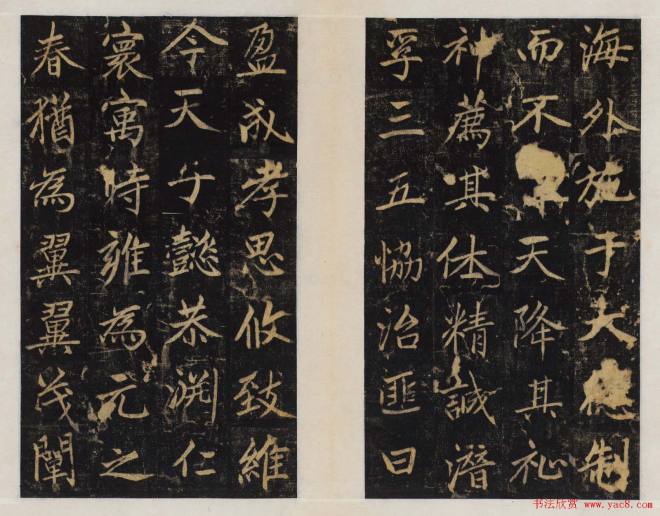 海外施于大德制
而不天降其祉
神薦其休精誠潛
孚三五恊治匪曰
盈成孝思攸致維
今天子懿恭淵仁
寰寓時雍為元之
春猶為翼翼茂闡
书法欣赏 www.yac8.com